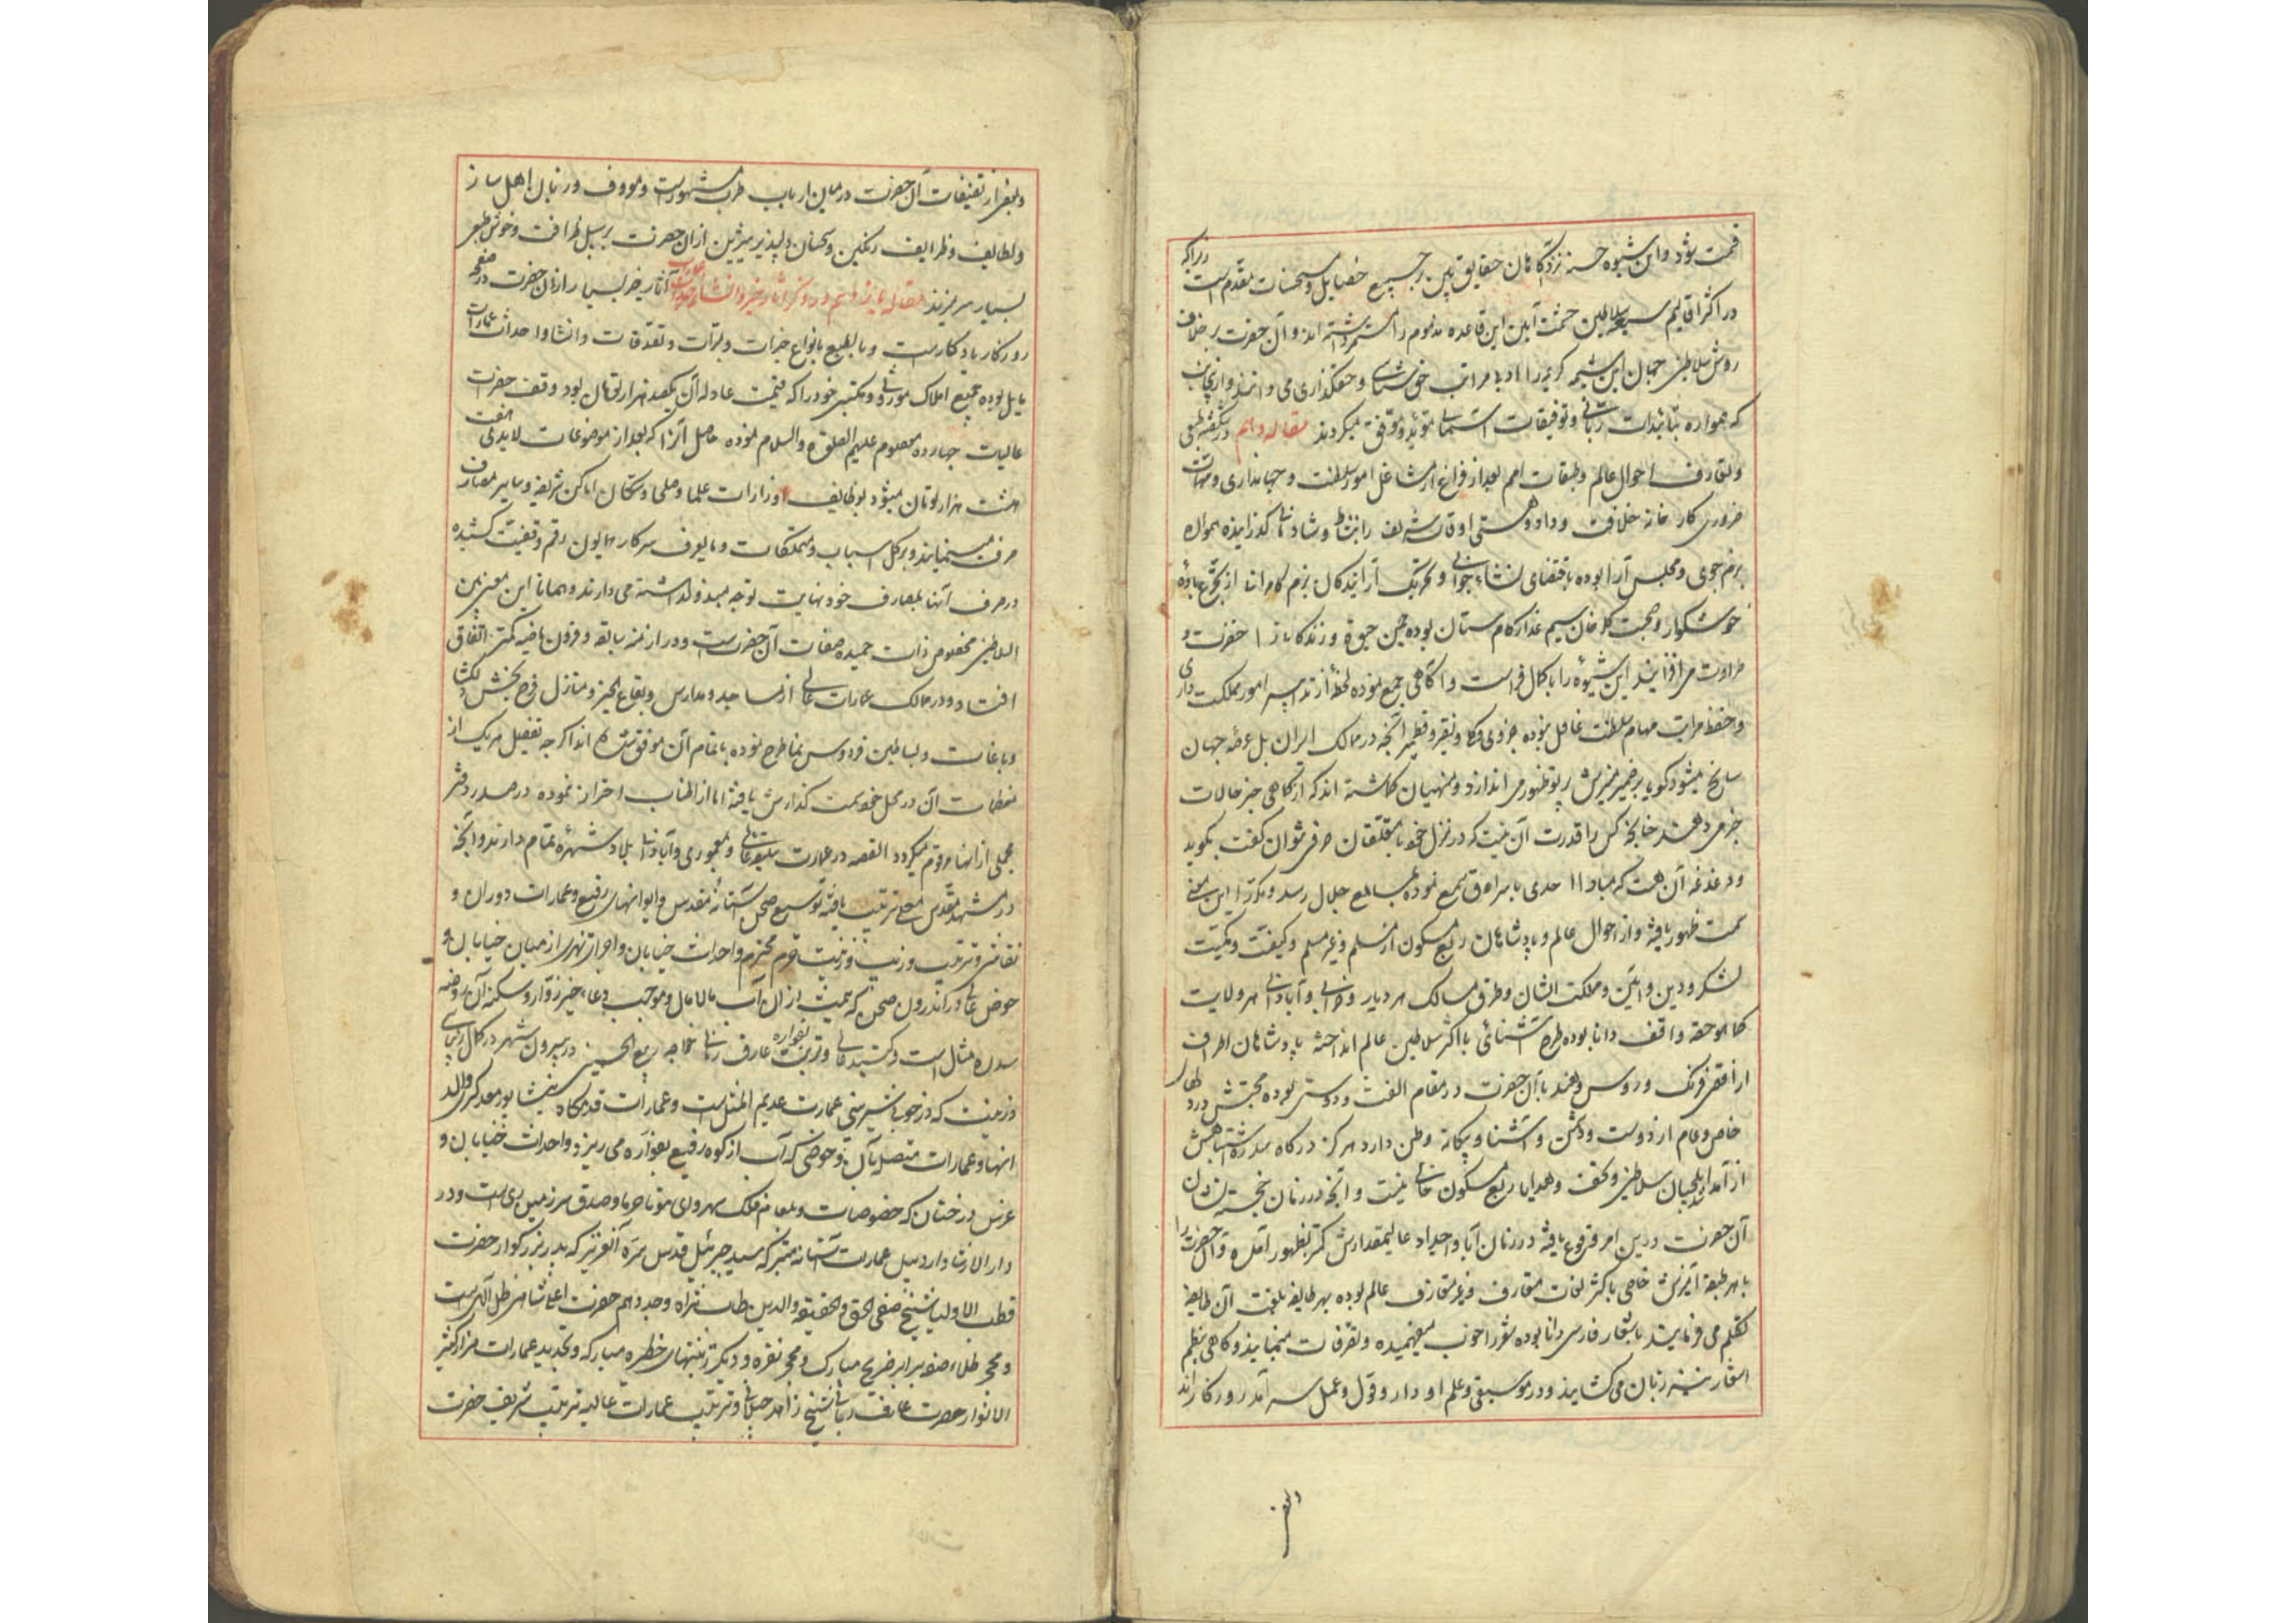 قسمت شود و این شیوه حسنه نزد آگاهان حقایق بین بر جمیع خصایل و مستحسنات مقدم است زیرا که
در اکثر اقالیم سبعه سلاطین حشمت آیین این قاعده مذموم را مستمر داشته اند و آن حضرت بر خلاف
روش سلاطین جهان این شیمه کریمه را ادنا مراتب حق شناسی و حقگذاری می دانند و از اینجاست
که همواره بتائیدات ربانی و توفیقات آسمانی مؤید و موفق میگردند مقاله دهم در شکفته طبعی
و تعارف احوال عالم و طبقات امم بعد از فراغ از مشاغل امور سلطنت و جهانداری و مهمات
ضروری کارخانه خلافت و داد و هستی اوقات شریف را بنشاط و شادمانی گذرانیده همواره
بزم جوی و مجلس آرا بوده باقتضای نشاء جوانی و تحریک آرایندگان بزم کامرانی از تجرع باده
خوشگوار و صحبت گلرخان سیم عذار کام ستان بوده چمن حیوة و زندگانی را حضرت و
طراوت می افزایند این شیوه را با کمال فراست و آگاهی جمع نموده لحظه از تدابیر امور مملکت داری
و حفظ مراتب مهام سلطنت غافل نبوده جزوی و کلی و نقیر و قطمیر آنچه در ممالک ایران بل عرصه جهان
سانح میشود گویا بر ضمیر منیرش پرتو ظهور می اندازد و منهیان گماشته اند که از گاهی خبر حالات
خبر می دهند چنانچه کس را قدرت آن نیست که در منزل خود با متعلقان حرفی توان گفت بگوید
و دغدغه آن هست که مبادا احدی باستراق سمع نموده بمسامع جلال رسد و مکررا این معنی
سمت ظهور یافته و از احوال عالم و پادشاهان ربع مسکون از مسلم و غیر مسلم و کیفیت و کمیت
لشکر و دین و آئین و مملکت ایشان و طرق مسالک هر دیار و خرابی و آبادانی هر ولایت
کما هو حقه واقف و دانا بوده طرح آشنائی با اکثر سلاطین عالم انداخته پادشاهان اطراف
از اقصی فرنگ و روس و هند با آن حضرت در مقام الفت و دوستی بوده محبتش در دلهای
خاص و عام از دوست و دشمن و آشنا و بیگانه وطن دارد هرگز درگاه سدره اشتباهش
از آمد ایلچیان سلاطین و تحف و هدایای ربع مسکون خالی نیست و آنچه در زمان خجسته نشان
آن حضرت درین امر وقوع یافته در زمان آبا و اجداد عالیمقدارش کمتر بظهور آمده و آن حضرت را
با هر طبقه آمیزش خاص باکثر لغات متعارف و غیر متعارف عالم بوده بهر طایفه بلغت آن طایفه
تکلم می فرمایند باشعار فارسی دانا بوده شعر را خوب میفهمیده و تصرفات مینمایند و گاهی بنظم
اشعار نیز زبان می گشایند و در موسیقی و علم ادوار و قول و عمل سرآمد روزگاراند
و بعضی
و بعضی از تصنیفات آن حضرت در میان ارباب طرب مشهور است و معروف و زبان اهل ساز
و لطایف و ظرایف رنگین و سخنان دلپذیر شیرین از ان حضرت بر سبیل ظرافت و خوش طبعی
بسیار سر میزند مقاله یازدهم در ذکر آثار خیر و انشاء عمارات آثار خیر بسیار از ان حضرت در صفحه
روزگار یادگار است و بالطبع بانواع خیرات و مبرات و تصدقات و انشا و احداث عمارات
مایل بوده جمیع املاک موروثی و مکتسبی خود را که قیمت عادله آن یکصد هزار تومان بود وقف حضرات
عالیات چهارده معصوم علیهم الصلوة و السلام نموده حاصل آنرا که بعد از موضوعات لابدی هفت
هشت هزار تومان میشود بوظایف و ادرارات علما و صلحا و سکان اماکن شریفه و سایر مصارف
صرف مینمایند و بر کل اسباب و متملکات و مایعرف سرکار همایون رقم وقفیت کشیده
در صرف آنها بمصارف خود نهایت توجه مبذول داشته می دارند و همانا این معنی بین
السلاطین مخصوص ذات حمیده صفات آن حضرت است و در ازمنه سابقه و قرون ماضیه کمتر اتفاق
افتاد و در ممالک عمارات عالی از مساجد و مدارس و بقاع الخیر و منازل فرح بخش دلگشا
و باغات و بساطین فردوس نما طرح نموده باتمام آن موفق شده اند اگر چه تفصیل هر یک از
منطات آن در محل خود سمت گذارش یافته اما از اطناب احتراز نموده در صدر دفتر
مجملی از آنها مرقوم میگردد القصه در عمارت بقعهای و معموری و آبادانی بلاد شهره تمام دارند و آنچه
در مشهد مقدس معلی ترتیب یافته توسیع صحن آستانه مقدس و ایوانهای رفیع و عمارات دوران و
نقاشی و ترتیب و زیب و زینت حرم محترم و احداث خیابان و اجرای نهری از میان خیابان و
حوض عالی در اندرون صحن که همیشه از ان آب مالامال و موجب دعای خیر زوار و سکنه آن روضه
سدره مثال است و گنبد عالی و تربت عارف ربانی خواجه ربیع الحسینی در بیرون شهر در کمال زیبایی
و زینت که در خوب نشیمنی عمارت عدیم المثل است و عمارات قدمگاه نیشابور معه کریاس و
انها و عمارات متصل بآن و حوضی که آب از کوه رفیع بفواره می ریزد و احداث خیابان و
غرس درختان که خصوصیات و بمقام فلک سهروی موتاخر ما و صدق سرزمین ری است و در
دار الارشاد اردبیل عمارات آستانه متبرکه سید جبرئیل قدس سره العزیز که پدر بزرگوار حضرت
قطب الاولیا شیخ صفی الحق و الحقیقه و الدین طاب ثراه وجد دهم حضرت اعلی شاهی ظل اللهی است
و محجر طلا، صنوبر ابر ضریح مبارک و محجر نقره و دیگر زینتهای حظیره مبارکه و تجدید عمارات مزار کثیر
الانوار حضرت عارف ربانی شیخ زاهد جیلانی و ترتیب عمارات عالیه ترتیب شریف حضرت